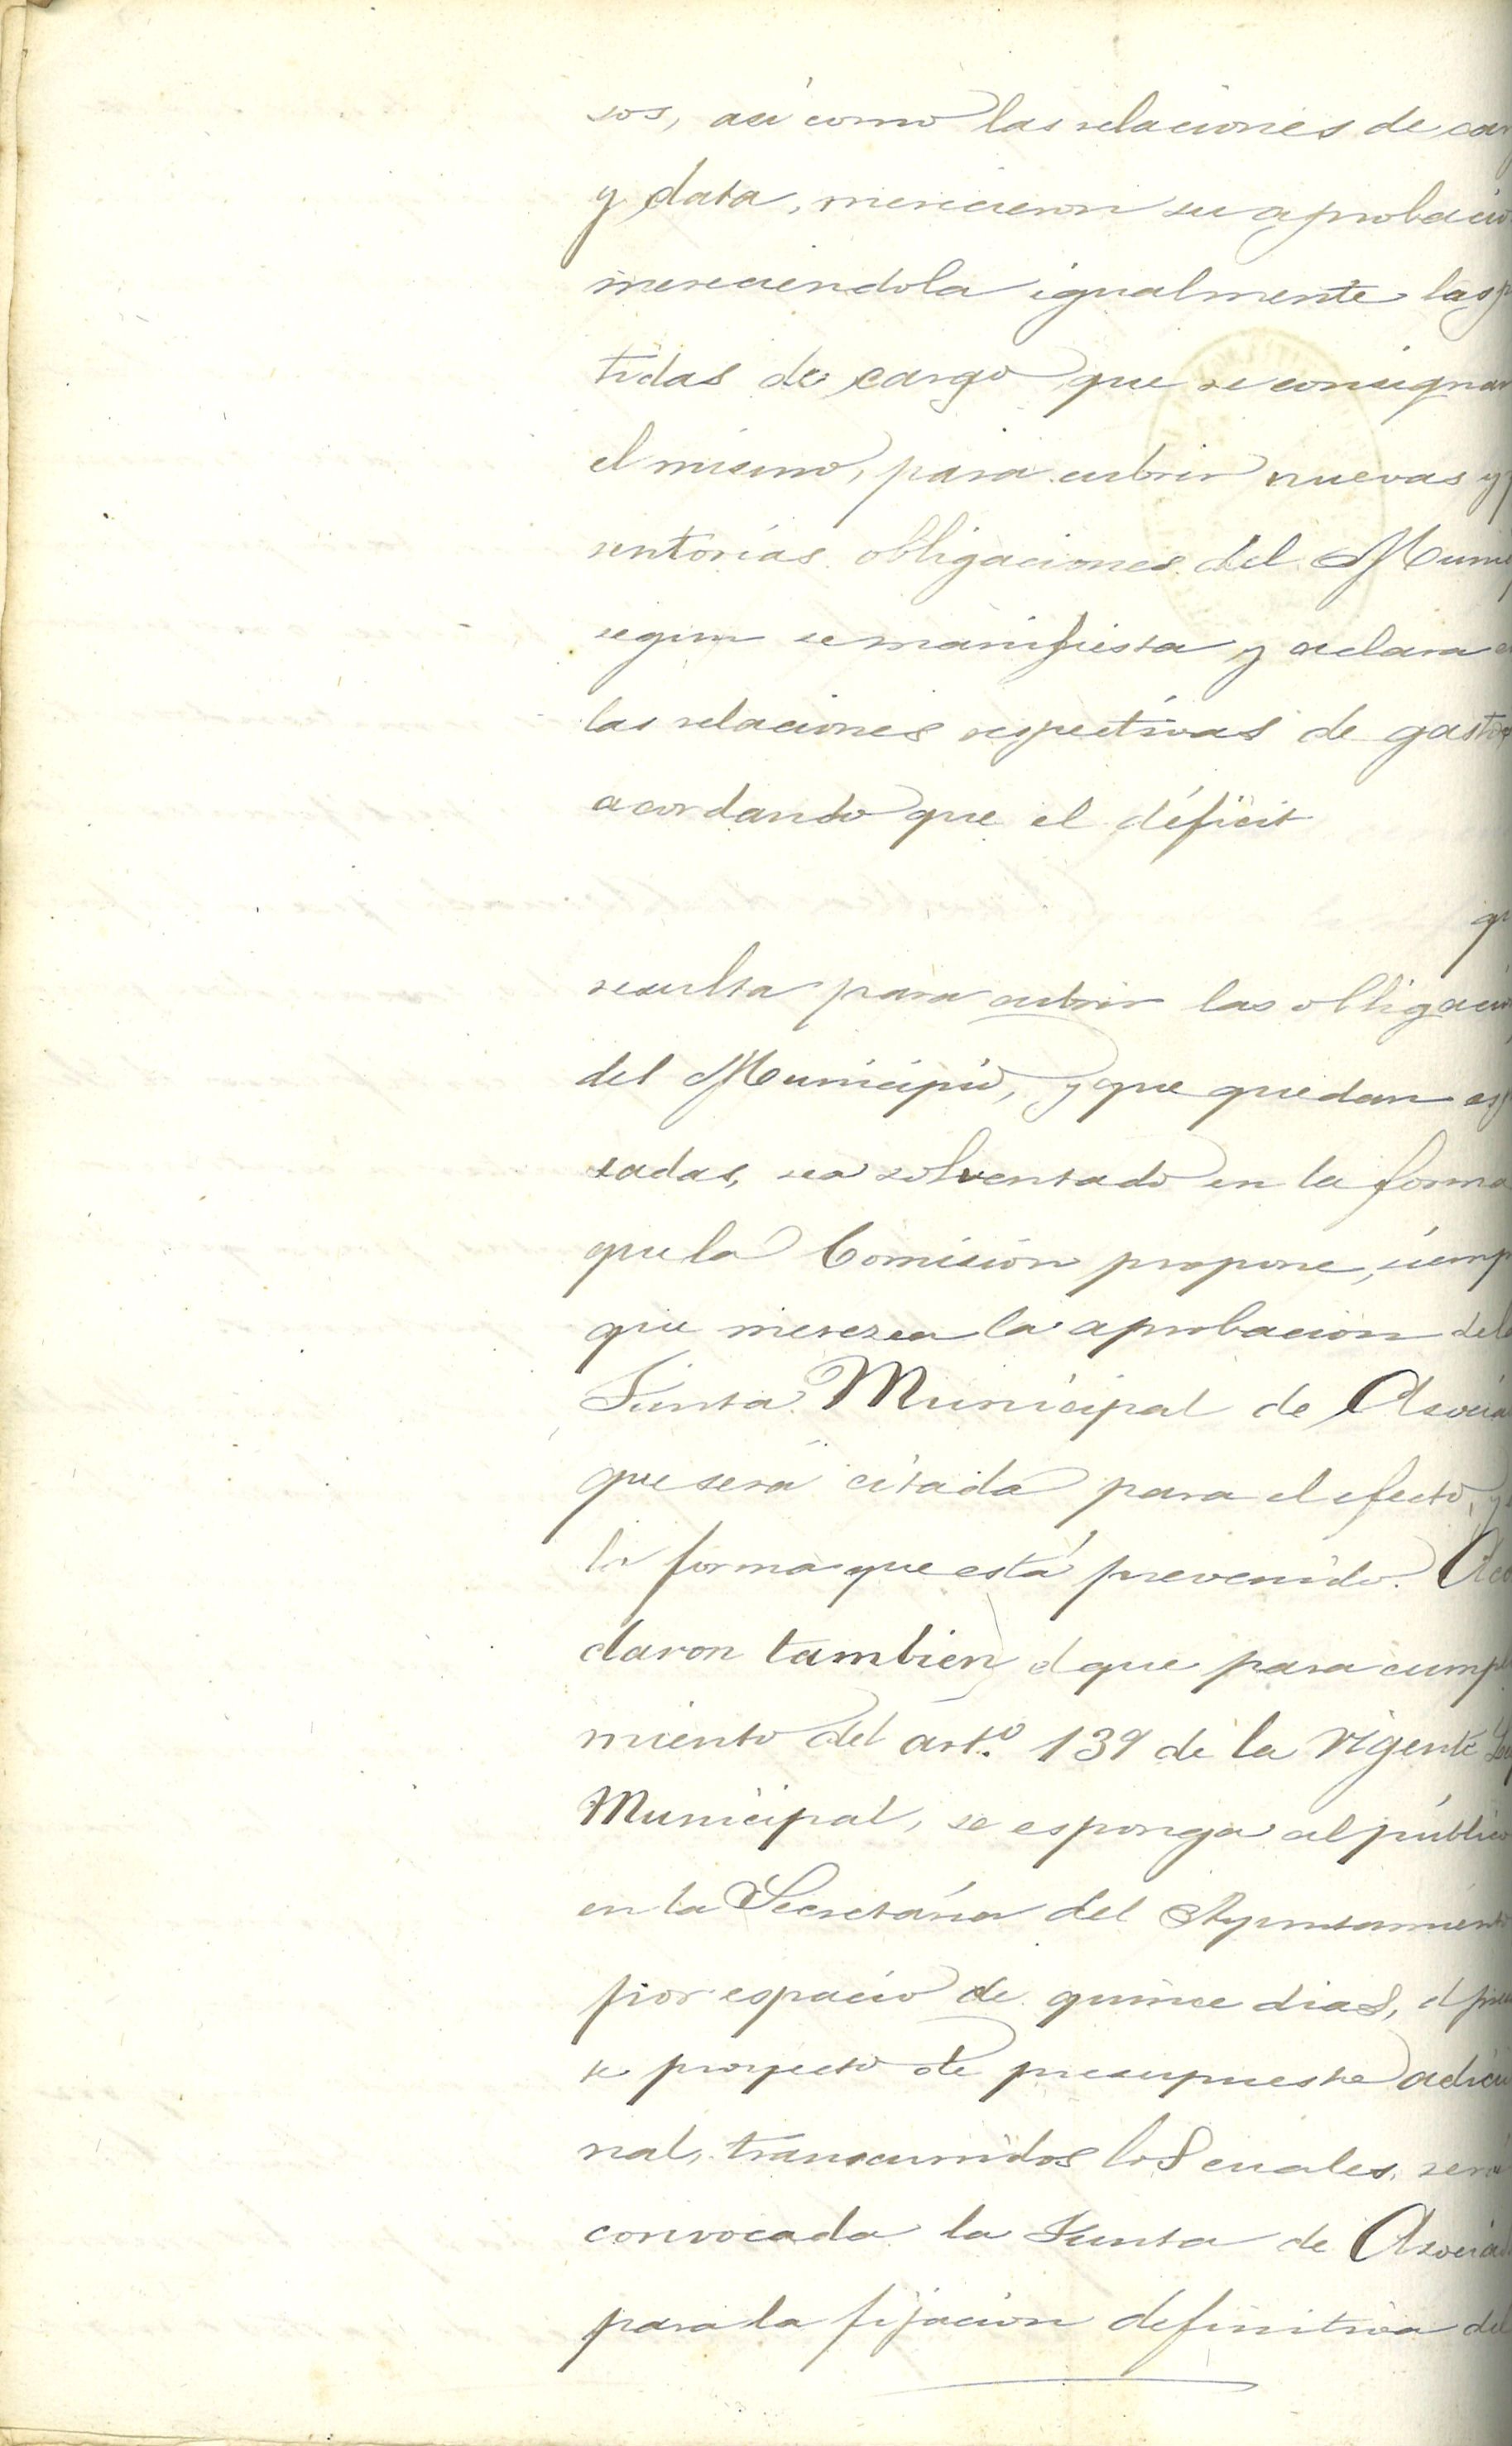 sos, así como las relaciones de car
y data, merecieron su aprobació
mereciendola igualmente las p
tidas de cargo que se consignan
el mismo, para cubrir nuevas y p
rentorias obligaciones del Muni
segun se manifiesta y aclara e
las relaciones respectivas de gastos
acordando que el déficit
qu
resulta para cubrir las obligacio
del Municipio, y que quedan esp
sadas, sea solventado en la forma
que la Comision propone, siemp
que merezca la aprobacion de la
Junta Municipal de Asocia
que será citada para el efecto, y
la forma que está prevenido. Aco
daron tambien el que para cumpli
miento del artº. 139 de la vigente Ley
Municipal, se esponga al público
en la Secretaría del Ayuntamiento
por espacio de quince dias, el pres
te proyecto de presupuesto adicio
nal, transcurridos los cuales, será
convocada la Junta de Asocia
para la fijacion definitiva del